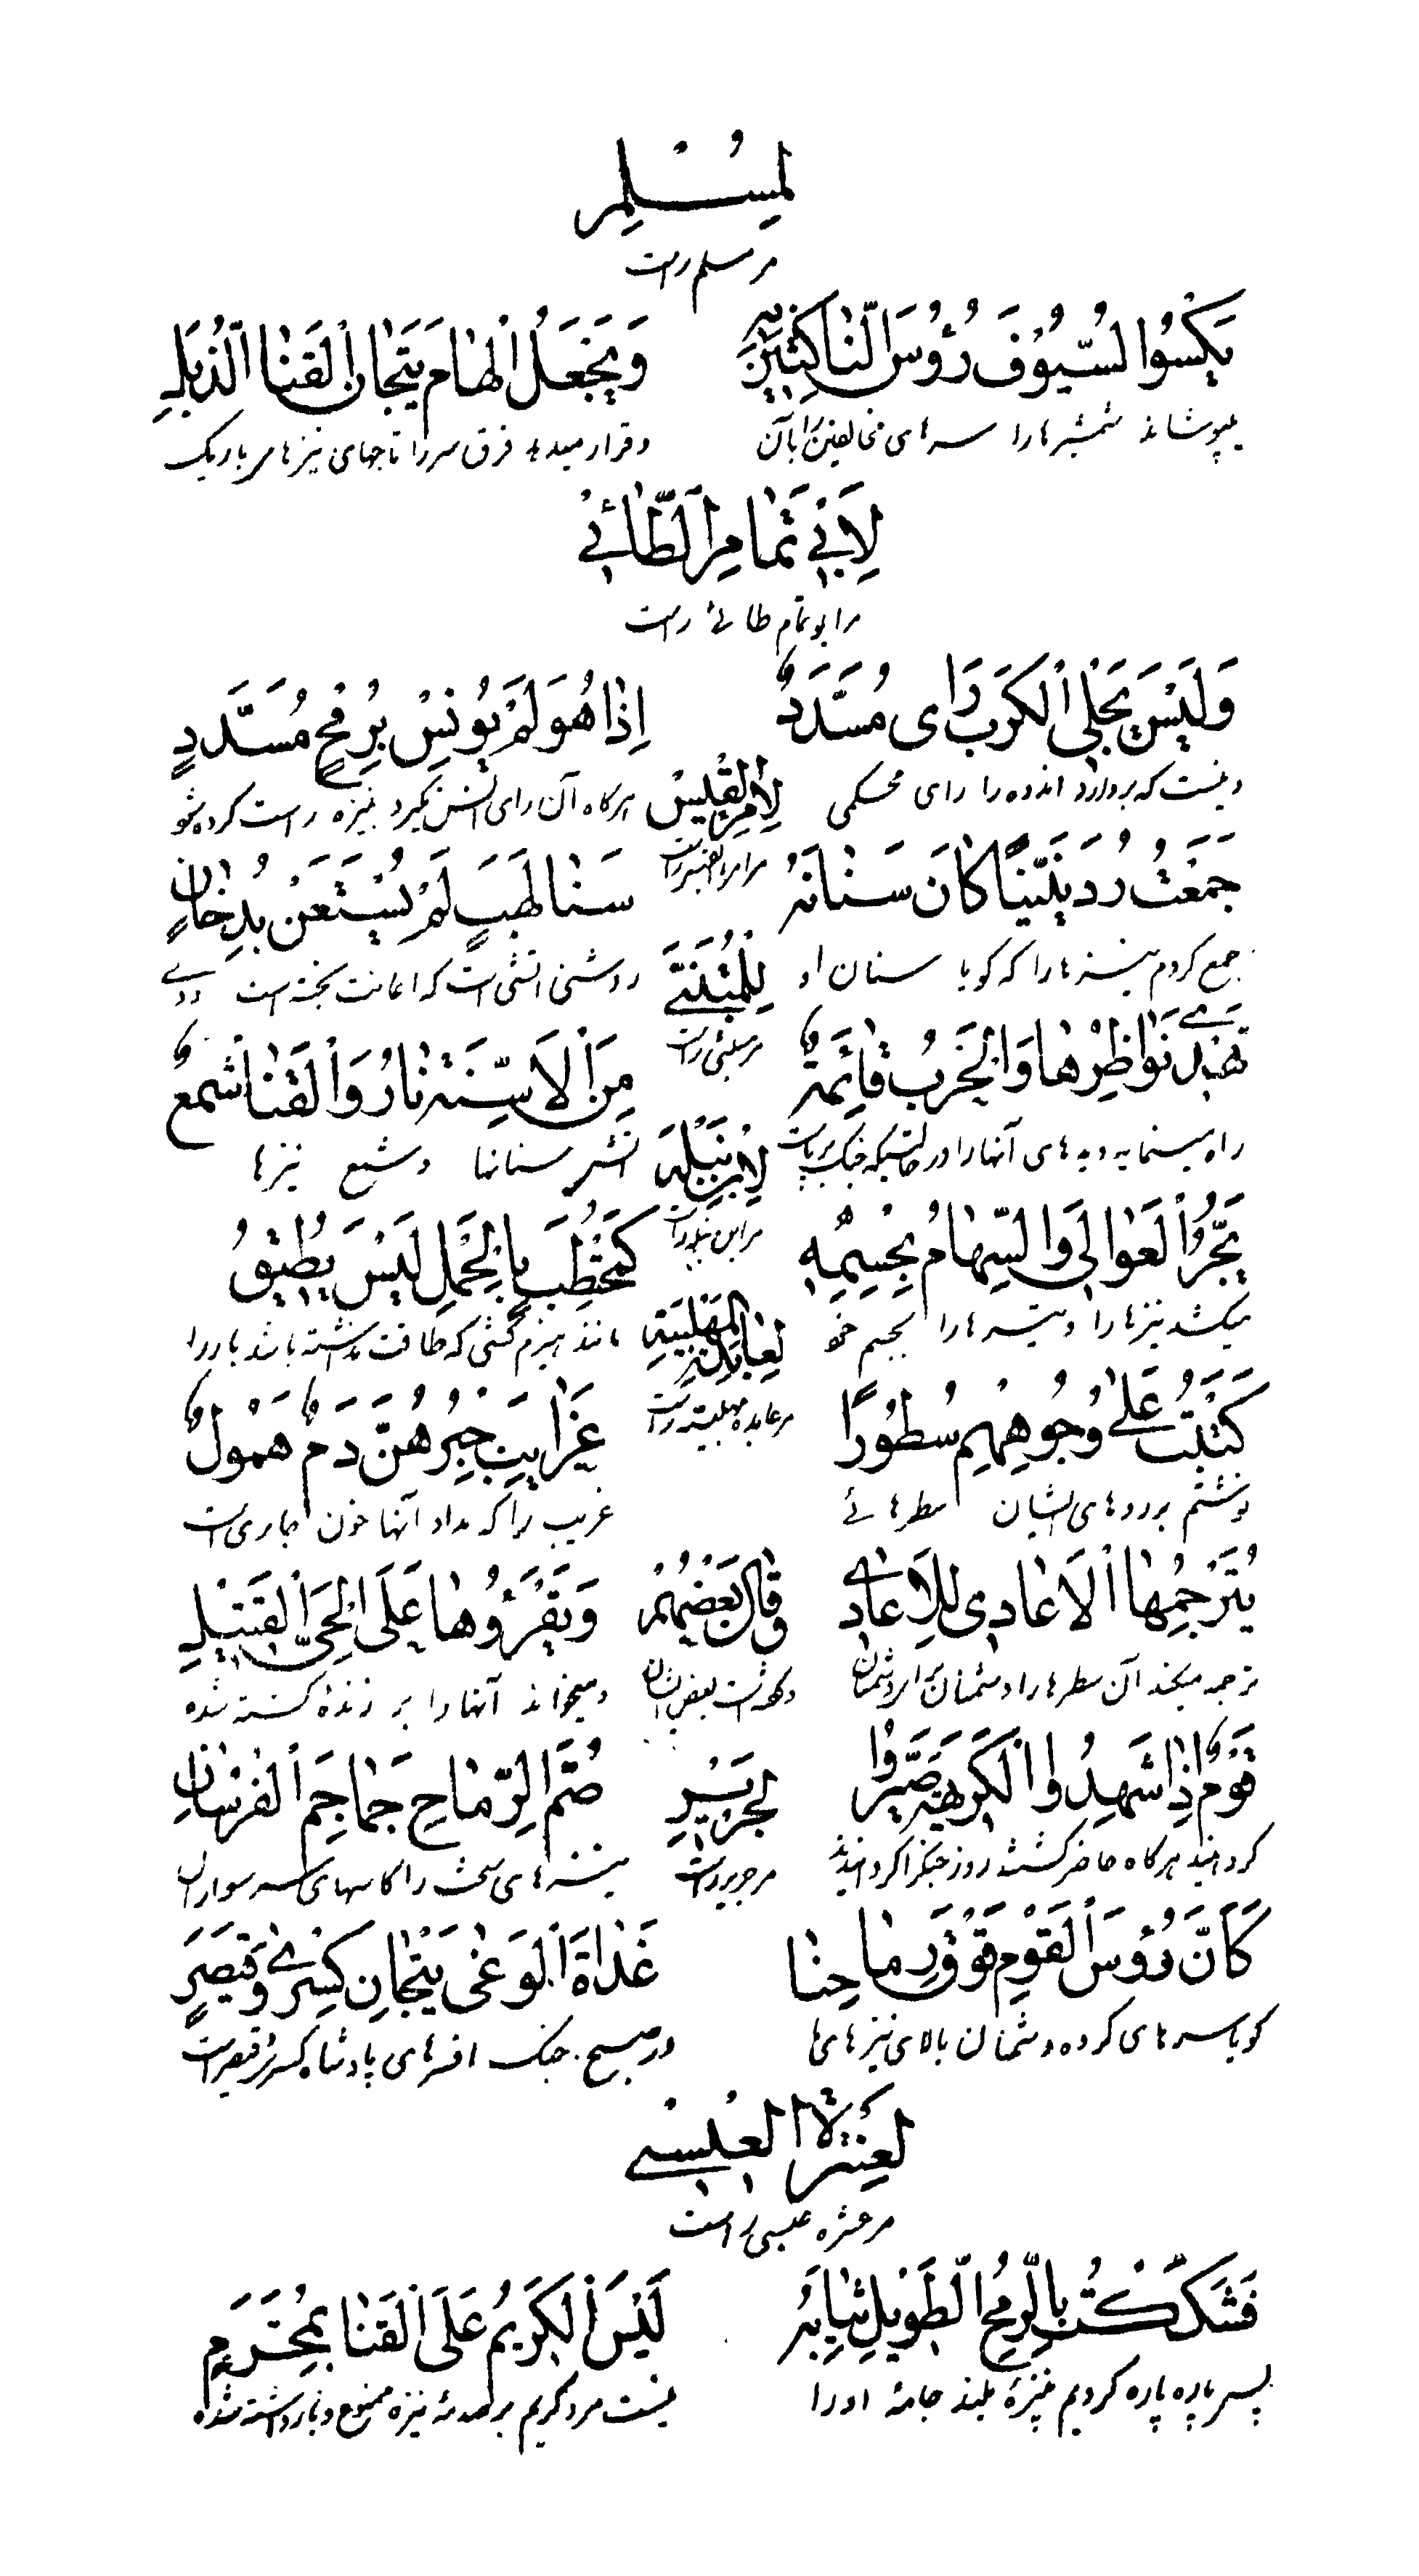 لِمُسْلِمِ
مر مسلم راست
يَكْسُوا لسُّيُوفَ رُؤُسَ النّٰاكِثِينَ بِهِ وَيَجْعَلُ الْهٰامَ تيٖجٰانَ الْقَنَا الذُّبَلِ
میپوشاند شمشیرها را سرهای مخالفین را بآن وقرار میدهد فرق سر را تاجهای نیزها سر باریک
لِاَبيٖ تَمٰامِ الطّٰائيٖ
مر ابو تمام طائی راست
وَلَيْسَ يَجْلِى الْكَرْبَ رَاىٌ مُسَدَّدٌ اِذٰا هُوَ لَمْ يُونَسْ بِرُمْحٍ مُسَدَّدٍ
ونیست که بردارد اندوه را رای محکمی هرگاه آن رای انس نگیرد بنیزه راست کرده شو
لِامْرِءِ الْقَيْسْ
مر امرء القیس راست
جَمَعْتُ رُدَيْنيّاً كَانَ سَنٰانَهُ سَنٰا لَهَبٍ لَمْ يَسْتَعِنْ بِدُخٰانٍ
جمع کردم نیزه ها را که گویا سنان او روشنی اتشی است که اعانت نجسته است دودی
لِلْمُتَنَبّيٖ
مر متنبی راست
تَهْدىٖ نَوٰاظِرَهٰا وَالْحَرْبُ قٰائِمَةٌ مِنَ الْاَسِنَّةِ نٰارٌ وَالْقَنٰا شَمَعٌ
راه مینماید دیده های آنها را در حالتیکه جنک برپاست اتش سنانها وشمع نیزها
لِابْنِ نُبَلَةَ
مر ابن نبله راست
يَجُرُّ الْعَوٰالى وَالسِّهٰامُ بِجِسْمِهِ كَمُحْتَطِبٍ بِالْحَمْلِ لَيْسَ يُطيٖقُ
میکشد نیزها را وتیرها را بجسم خود مانند هیزم کشی که طاقت نداشته باشد بار را
لِعٰابِدَةِ الْمُهَلَّبِيَّةِ
مر عابده مهلبیه راست
كَتَبْتُ عَلٰى وُجُوهِهِمِ سُطُورًا غَرٰايِبَ حِبْرُهُنَّ دَمٌ هَمُولُ
نوشتم بر روهای ایشان سطرهائی غریب را که مداد آنها خون جاری است
يُتَرْجِمُهَا الْاَعٰادى لِلْاَعٰادىٖ وَيَقْرَؤُهٰا عَلَى الْحَىِّ الْقَتيٖلِ
ترجمه میکند آن سطرها را دشمنان بر دشمنان ومیخواند آنها را بر زنده کشته شده
وَقٰالَ بَعْضُهُمْ
وگفته است بعض ایشان
قَوْمٌ اِذٰا شَهِدُوا الْكَرِيهَةَ صَيَّرُوا صُمَّ الرِّمٰاحِ جَمٰاجِمَ الْفُرْسٰانِ
گروهیند هرگاه حاضر گشتند روز جنگ را گردانیدند نیزه های سخت را کاسهای سر سواران
لِجَريٖرٍ
مر جریر راست
كَاَنَّ رُؤُسَ الْقَوْمِ فَوْقَ رِمٰاحِنٰا غَدٰاةَ الْوَغٰى تيٖجٰانِ كِسْرىٰ وَقَيْصَرٍ
گویا سرهای گروه دشمنان بالای نیزهای ما در صبح جنک افسرهای پادشاه کسری وقیصر است
لِعَنْتَرَةَ الْعَبْسىٖ
مر عنتره عبسی راست
فَشَكَكْتُ بِالرُّمْحِ الطَّويٖلِ ثِيٰابَهُ لَيْسَ الْكَريٖمُ عَلَى الْقَنٰا بِمُحَرَّمٍ
پس پاره پاره کردیم بنیزه بلند جامه او را نیست مرد کریم بر صدمه نیزه ممنوع وبازداشته شده